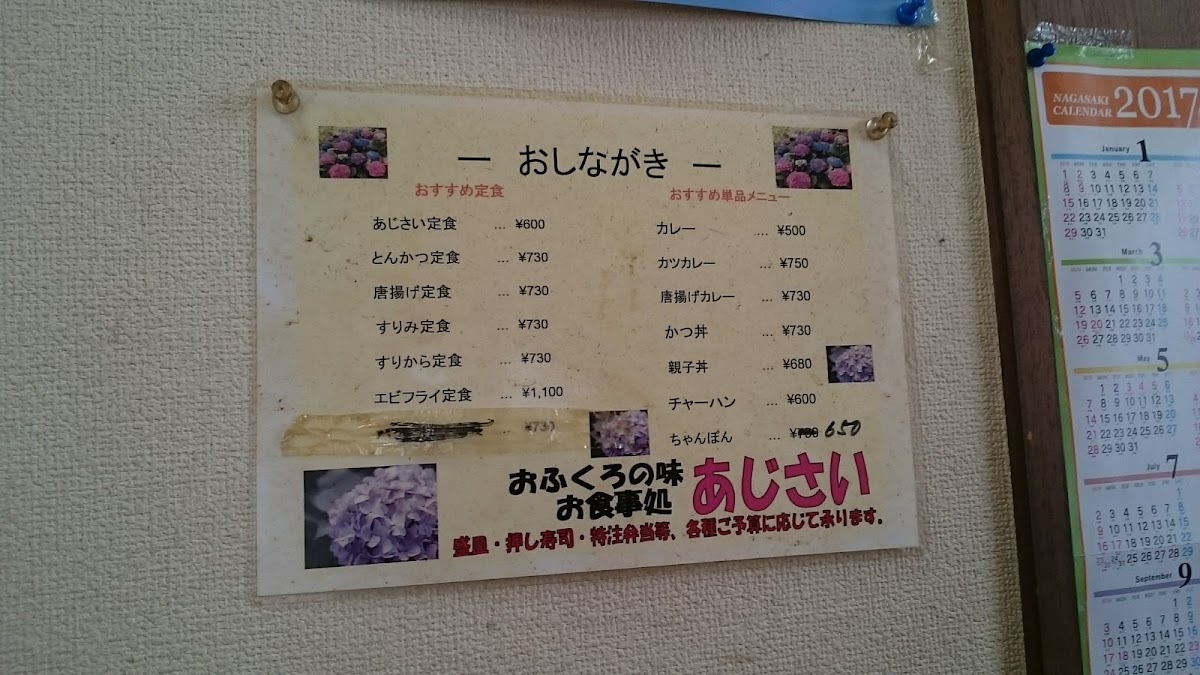 — おしながき —
おすすめ定食
あじさい定食 … ¥600
とんかつ定食 … ¥730
唐揚げ定食 … ¥730
すりみ定食 … ¥730
すりから定食 … ¥730
エビフライ定食 … ¥1,100
¥730
おすすめ単品メニュー
カレー …. ¥500
カツカレー … ¥750
唐揚げカレー … ¥730
かつ丼 … ¥730
親子丼 … ¥680
チャーハン … ¥600
ちゃんぽん … 650
おふくろの味
お食事処
あじさい
盛皿・押し寿司・特注弁当等、各種ご予算に応じて承ります。
NAGASAKI
CALENDAR 2017
January 1
1 2 3 4 5 6 7
8 9 10 11 12 13 14
15 16 17 18 19 20 21
22 23 24 25 26 27 28
29 30 31
March 3
1 2 3 4
5 6 7 8 9 10 11
12 13 14 15 16 17 18
19 20 21 22 23 24 25
26 27 28 29 30 31
May 5
1 2 3 4 5 6
7 8 9 10 11 12 13
14 15 16 17 18 19 20
21 22 23 24 25 26 27
28 29 30 31
July 7
1
2 3 4 5 6 7 8
9 10 11 12 13 14 15
16 17 18 19 20 21 22
25 26 27 28 29
September 9
1 2
3 4 5 6 7 8 9
10 11 12 13 14 15 16
17 18 19 20 21 22 23
24 25 26 27 28 29 30